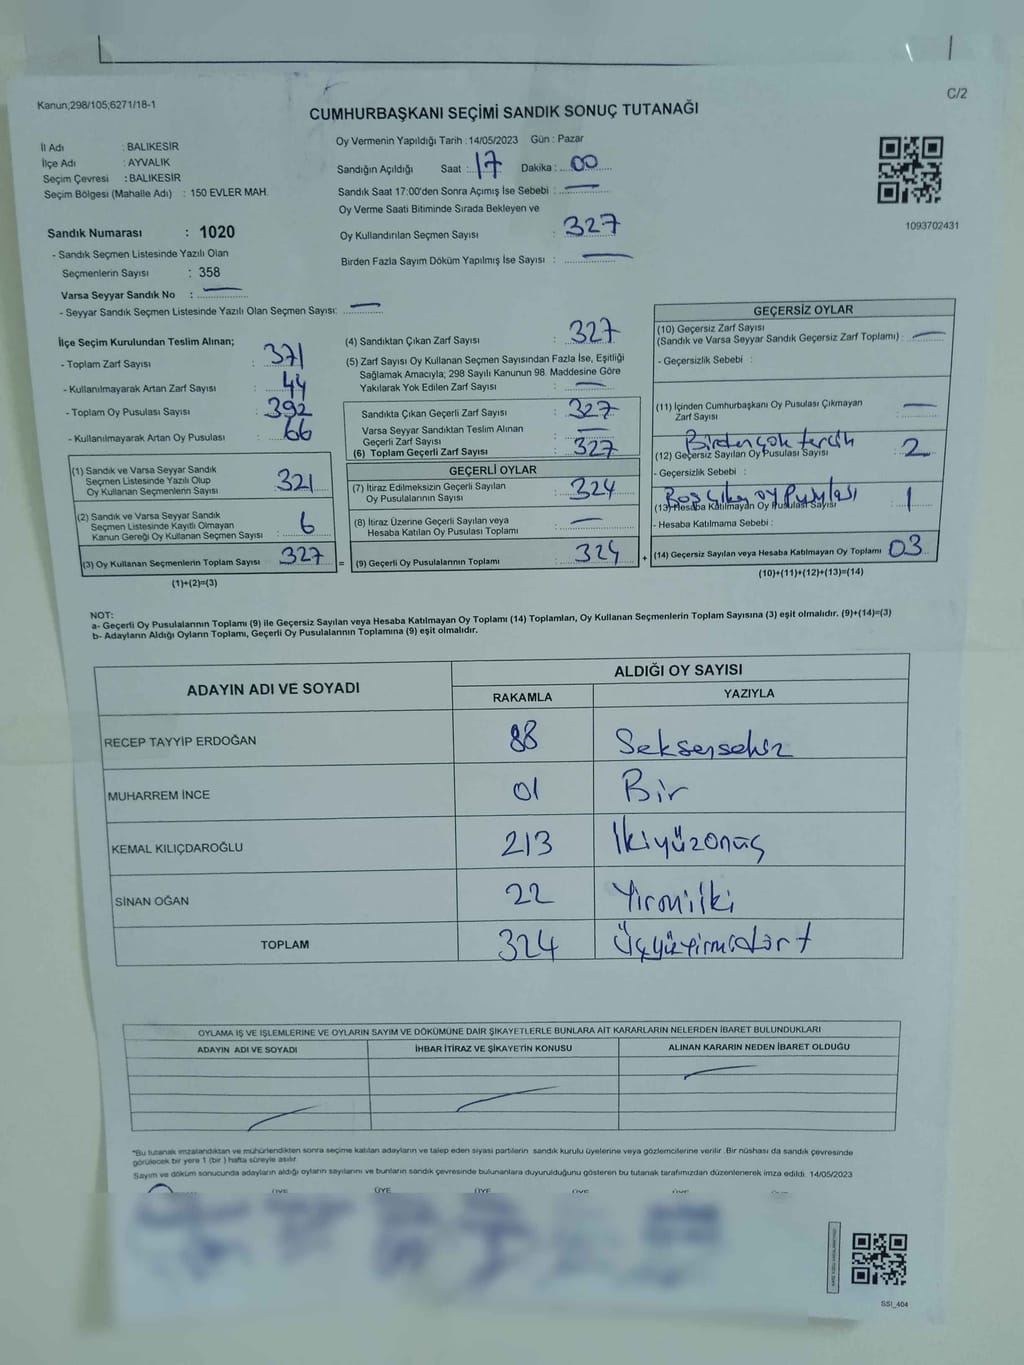 Kanun;298/105;6271/18-1
C/2
CUMHURBAŞKANI SEÇİMİ SANDIK SONUÇ TUTANAĞI
İl Adı : BALIKESİR
İlçe Adı : AYVALIK
Seçim Çevresi : BALIKESİR
Seçim Bölgesi (Mahalle Adı) : 150 EVLER MAH.
Sandık Numarası : 1020
- Sandık Seçmen Listesinde Yazılı Olan
Seçmenlerin Sayısı : 358
Varsa Seyyar Sandık No :
- Seyyar Sandık Seçmen Listesinde Yazılı Olan Seçmen Sayısı:
Oy Vermenin Yapıldığı Tarih : 14/05/2023 Gün : Pazar
Sandığın Açıldığı Saat : 17 Dakika : 00
Sandık Saat 17:00'den Sonra Açımış İse Sebebi :
Oy Verme Saati Bitiminde Sırada Bekleyen ve
Oy Kullandırılan Seçmen Sayısı : 327
Birden Fazla Sayım Döküm Yapılmış İse Sayısı :
1093702431
İlçe Seçim Kurulundan Teslim Alınan;
- Toplam Zarf Sayısı : 371
- Kullanılmayarak Artan Zarf Sayısı : 44
- Toplam Oy Pusulası Sayısı : 392
- Kullanılmayarak Artan Oy Pusulası : 66
(1) Sandık ve Varsa Seyyar Sandık
Seçmen Listesinde Yazılı Olup
Oy Kullanan Seçmenlerin Sayısı : 321
(2) Sandık ve Varsa Seyyar Sandık
Seçmen Listesinde Kayıtlı Olmayan
Kanun Gereği Oy Kullanan Seçmen Sayısı : 6
(3) Oy Kullanan Seçmenlerin Toplam Sayısı : 327
(1)+(2)=(3)
(4) Sandıktan Çıkan Zarf Sayısı : 327
(5) Zarf Sayısı Oy Kullanan Seçmen Sayısından Fazla İse, Eşitliği
Sağlamak Amacıyla; 298 Sayılı Kanunun 98. Maddesine Göre
Yakılarak Yok Edilen Zarf Sayısı :
Sandıkta Çıkan Geçerli Zarf Sayısı : 327
Varsa Seyyar Sandıktan Teslim Alınan
Geçerli Zarf Sayısı :
(6) Toplam Geçerli Zarf Sayısı : 327
GEÇERLİ OYLAR
(7) İtiraz Edilmeksizin Geçerli Sayılan
Oy Pusulalarının Sayısı : 324
(8) İtiraz Üzerine Geçerli Sayılan veya
Hesaba Katılan Oy Pusulası Toplamı :
= (9) Geçerli Oy Pusulalarının Toplamı : 324 +
GEÇERSİZ OYLAR
(10) Geçersiz Zarf Sayısı
(Sandık ve Varsa Seyyar Sandık Geçersiz Zarf Toplamı) :
- Geçersizlik Sebebi :
(11) İçinden Cumhurbaşkanı Oy Pusulası Çıkmayan
Zarf Sayısı :
Birden çok tercih
(12) Geçersiz Sayılan Oy Pusulası Sayısı : 2
- Geçersizlik Sebebi :
Boş çıkan oy Pusulası
(13) Hesaba Katılmayan Oy Pusulası Sayısı : 1
- Hesaba Katılmama Sebebi :
(14) Geçersiz Sayılan veya Hesaba Katılmayan Oy Toplamı : 03
(10)+(11)+(12)+(13)=(14)
NOT:
a- Geçerli Oy Pusulalarının Toplamı (9) ile Geçersiz Sayılan veya Hesaba Katılmayan Oy Toplamı (14) Toplamları, Oy Kullanan Seçmenlerin Toplam Sayısına (3) eşit olmalıdır. (9)+(14)=(3)
b- Adayların Aldığı Oyların Toplamı, Geçerli Oy Pusulalarının Toplamına (9) eşit olmalıdır.
ADAYIN ADI VE SOYADI ALDIĞI OY SAYISI
RAKAMLA YAZIYLA
RECEP TAYYİP ERDOĞAN 88 Seksensekiz
MUHARREM İNCE 01 Bir
KEMAL KILIÇDAROĞLU 213 İkiyüzonüç
SİNAN OĞAN 22 Yirmiiki
TOPLAM 324 Üçyüzyirmidört
OYLAMA İŞ VE İŞLEMLERİNE VE OYLARIN SAYIM VE DÖKÜMÜNE DAİR ŞİKAYETLERLE BUNLARA AİT KARARLARIN NELERDEN İBARET BULUNDUKLARI
ADAYIN ADI VE SOYADI İHBAR İTİRAZ VE ŞİKAYETİN KONUSU ALINAN KARARIN NEDEN İBARET OLDUĞU
*Bu tutanak imzalandıktan ve mühürlendikten sonra seçime katılan adayların ve talep eden siyasi partilerin sandık kurulu üyelerine veya gözlemcilerine verilir. Bir nüshası da sandık çevresinde
görülecek bir yere 1 (bir ) hafta süreyle asılır.
Sayım ve döküm sonucunda adayların aldığı oyların sayılarını ve bunların sandık çevresinde bulunanlara duyurulduğunu gösteren bu tutanak tarafımızdan düzenlenerek imza edildi. 14/05/2023
ÜYE ÜYE ÜYE ÜYE ÜYE
SSI_404